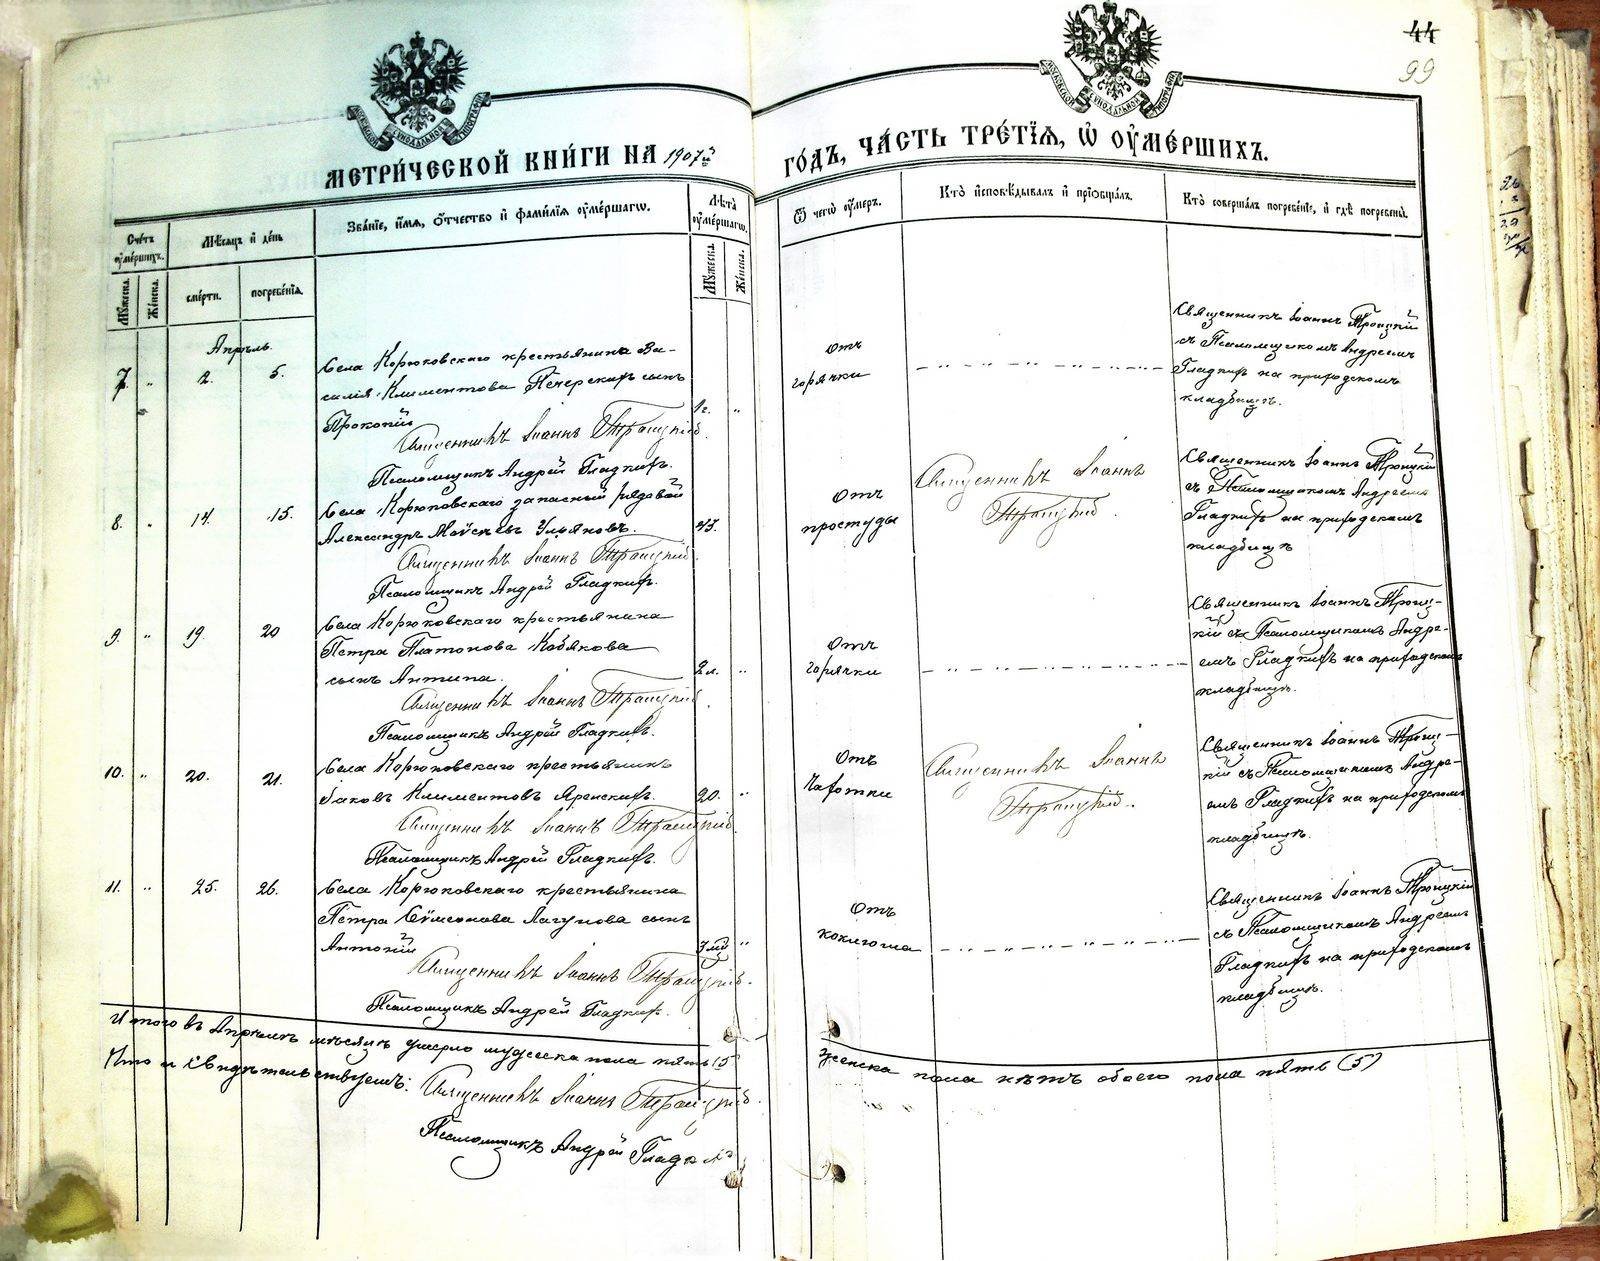 44
99
МОСКОВСКОЙ СѴНОДАЛЬНОЙ ТИПОГРАФІИ
МОСКОВСКОЙ СѴНОДАЛЬНОЙ ТИПОГРАФІИ
МЕТРИ́ЧЕСКОЙ КНИ́ГИ НА 1907й
ГО́ДЪ, ЧА́СТЬ ТРЕ́ТІѦ, Ѡ᾿ ОУ҆МЕ́РШИХЪ.
Сче́тъ оу҆ме́ршихъ.
Мꙋ́жеска.
Же́нска.
Мѣ́сѧцъ и҆ де́нь
сме́рти.
погребе́нїѧ.
Зва́нїе, и҆́мѧ, ѻ҆́тчество и҆ фами́лїѧ оу҆ме́ршагѡ.
Лѣ́та оу҆ме́ршагѡ.
Мꙋ́жеска.
Же́нска.
Ѿ чегѡ̀ оу҆́меръ.
Кто̀ и҆сповѣ́дывалъ и҆ прїѡбща́лъ.
Кто̀ соверша́лъ погребе́нїе, и҆ гдѣ̀ погребены̀.
Апрѣль.
7. " 2. 5.
Села Корюковскаго крестьянина Ва-
силія Климентова Печерскихъ сынъ
Прокопій
1г. "
Священникъ Іоаннъ Троицкій.
Псаломщикъ Андрей Гладкихъ.
отъ
горячки
Священникъ Іоаннъ Троицкій
съ Псаломщикомъ Андреемъ
Гладкихъ на приходскомъ
кладбищѣ.
8. " 14. 15.
Села Корюковскаго запасный рядовой
Александръ Моѵсеевъ Ульяновъ.
45.
Священникъ Іоаннъ Троицкій.
Псаломщикъ Андрей Гладкихъ.
отъ
простуды
Священникъ Іоаннъ
Троицкій.
Священникъ Іоаннъ Троицкій
съ Псаломщикомъ Андреемъ
Гладкихъ на приходскомъ
кладбищѣ
9. " 19. 20
Села Корюковскаго крестьянина
Петра Платонова Кобякова
сынъ Антипа.
2л. "
Священникъ Іоаннъ Троицкій.
Псаломщикъ Андрей Гладкихъ.
отъ
горячки
Священникъ Іоаннъ Троиц-
кій съ Псаломщикомъ Андре-
емъ Гладкихъ на приходскомъ
кладбищѣ.
10. " 20. 21.
Села Корюковскаго крестьянинъ
Іаковъ Климентовъ Яренскихъ.
20. "
Священникъ Іоаннъ Троицкій.
Псаломщикъ Андрей Гладкихъ.
Отъ
Чахотки
Священникъ Іоаннъ
Троицкій.
Священникъ Іоаннъ Троиц-
кій съ Псаломщикомъ Андре-
емъ Гладкихъ на приходскомъ
кладбищѣ.
11. " 25. 26.
Села Корюковскаго крестьянина
Петра Сѵмеонова Лагунова сынъ
Антоній
7 мѣ "
Священникъ Іоаннъ Троицкій.
Псаломщикъ Андрей Гладкихъ.
Отъ
коклюша
Священникъ Іоаннъ Троицкій
съ Псаломщикомъ Андреемъ
Гладкихъ на приходскомъ
кладбищѣ.
Итого въ Апрѣлѣ мѣсяцѣ умерло мужеска пола пять (5
женска пола нѣтъ обоего пола пять (5)
Что и свидѣтельствуемъ: Священникъ Іоаннъ Троицкій.
Псаломщикъ Андрей Гладкихъ